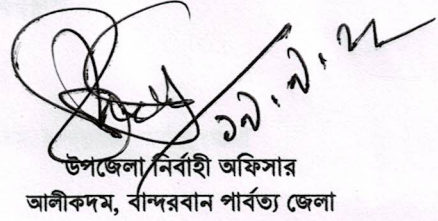 উপজেলা নির্বাহী অফিসার
আলীকদম, বান্দরবান পার্বত্য জেলা